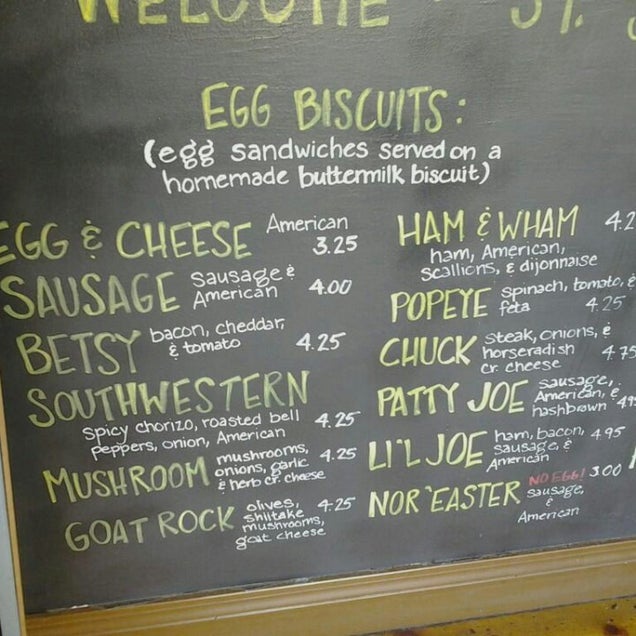 WELCOME
EGG BISCUITS:
(egg sandwiches served on a
homemade buttermilk biscuit)
EGG & CHEESE American
3.25
SAUSAGE sausage &
American 4.00
BETSY bacon, cheddar,
& tomato 4.25
SOUTHWESTERN
spicy chorizo, roasted bell
peppers, onion, American 4.25
MUSHROOM mushrooms,
onions, garlic
& herb cr. cheese 4.25
GOAT ROCK olives,
shiitake
mushrooms,
goat cheese 4.25
HAM & WHAM 4.2
ham, American,
scallions, & dijonnaise
POPEYE spinach, tomato, &
feta 4.25
CHUCK steak, onions, &
horseradish
cr. cheese 4.75
PATTY JOE sausage,
American, &
hashbrown
LI'L JOE ham, bacon,
sausage, &
American 4.95
NOR'EASTER NO EGG! 3.00
sausage,
&
American